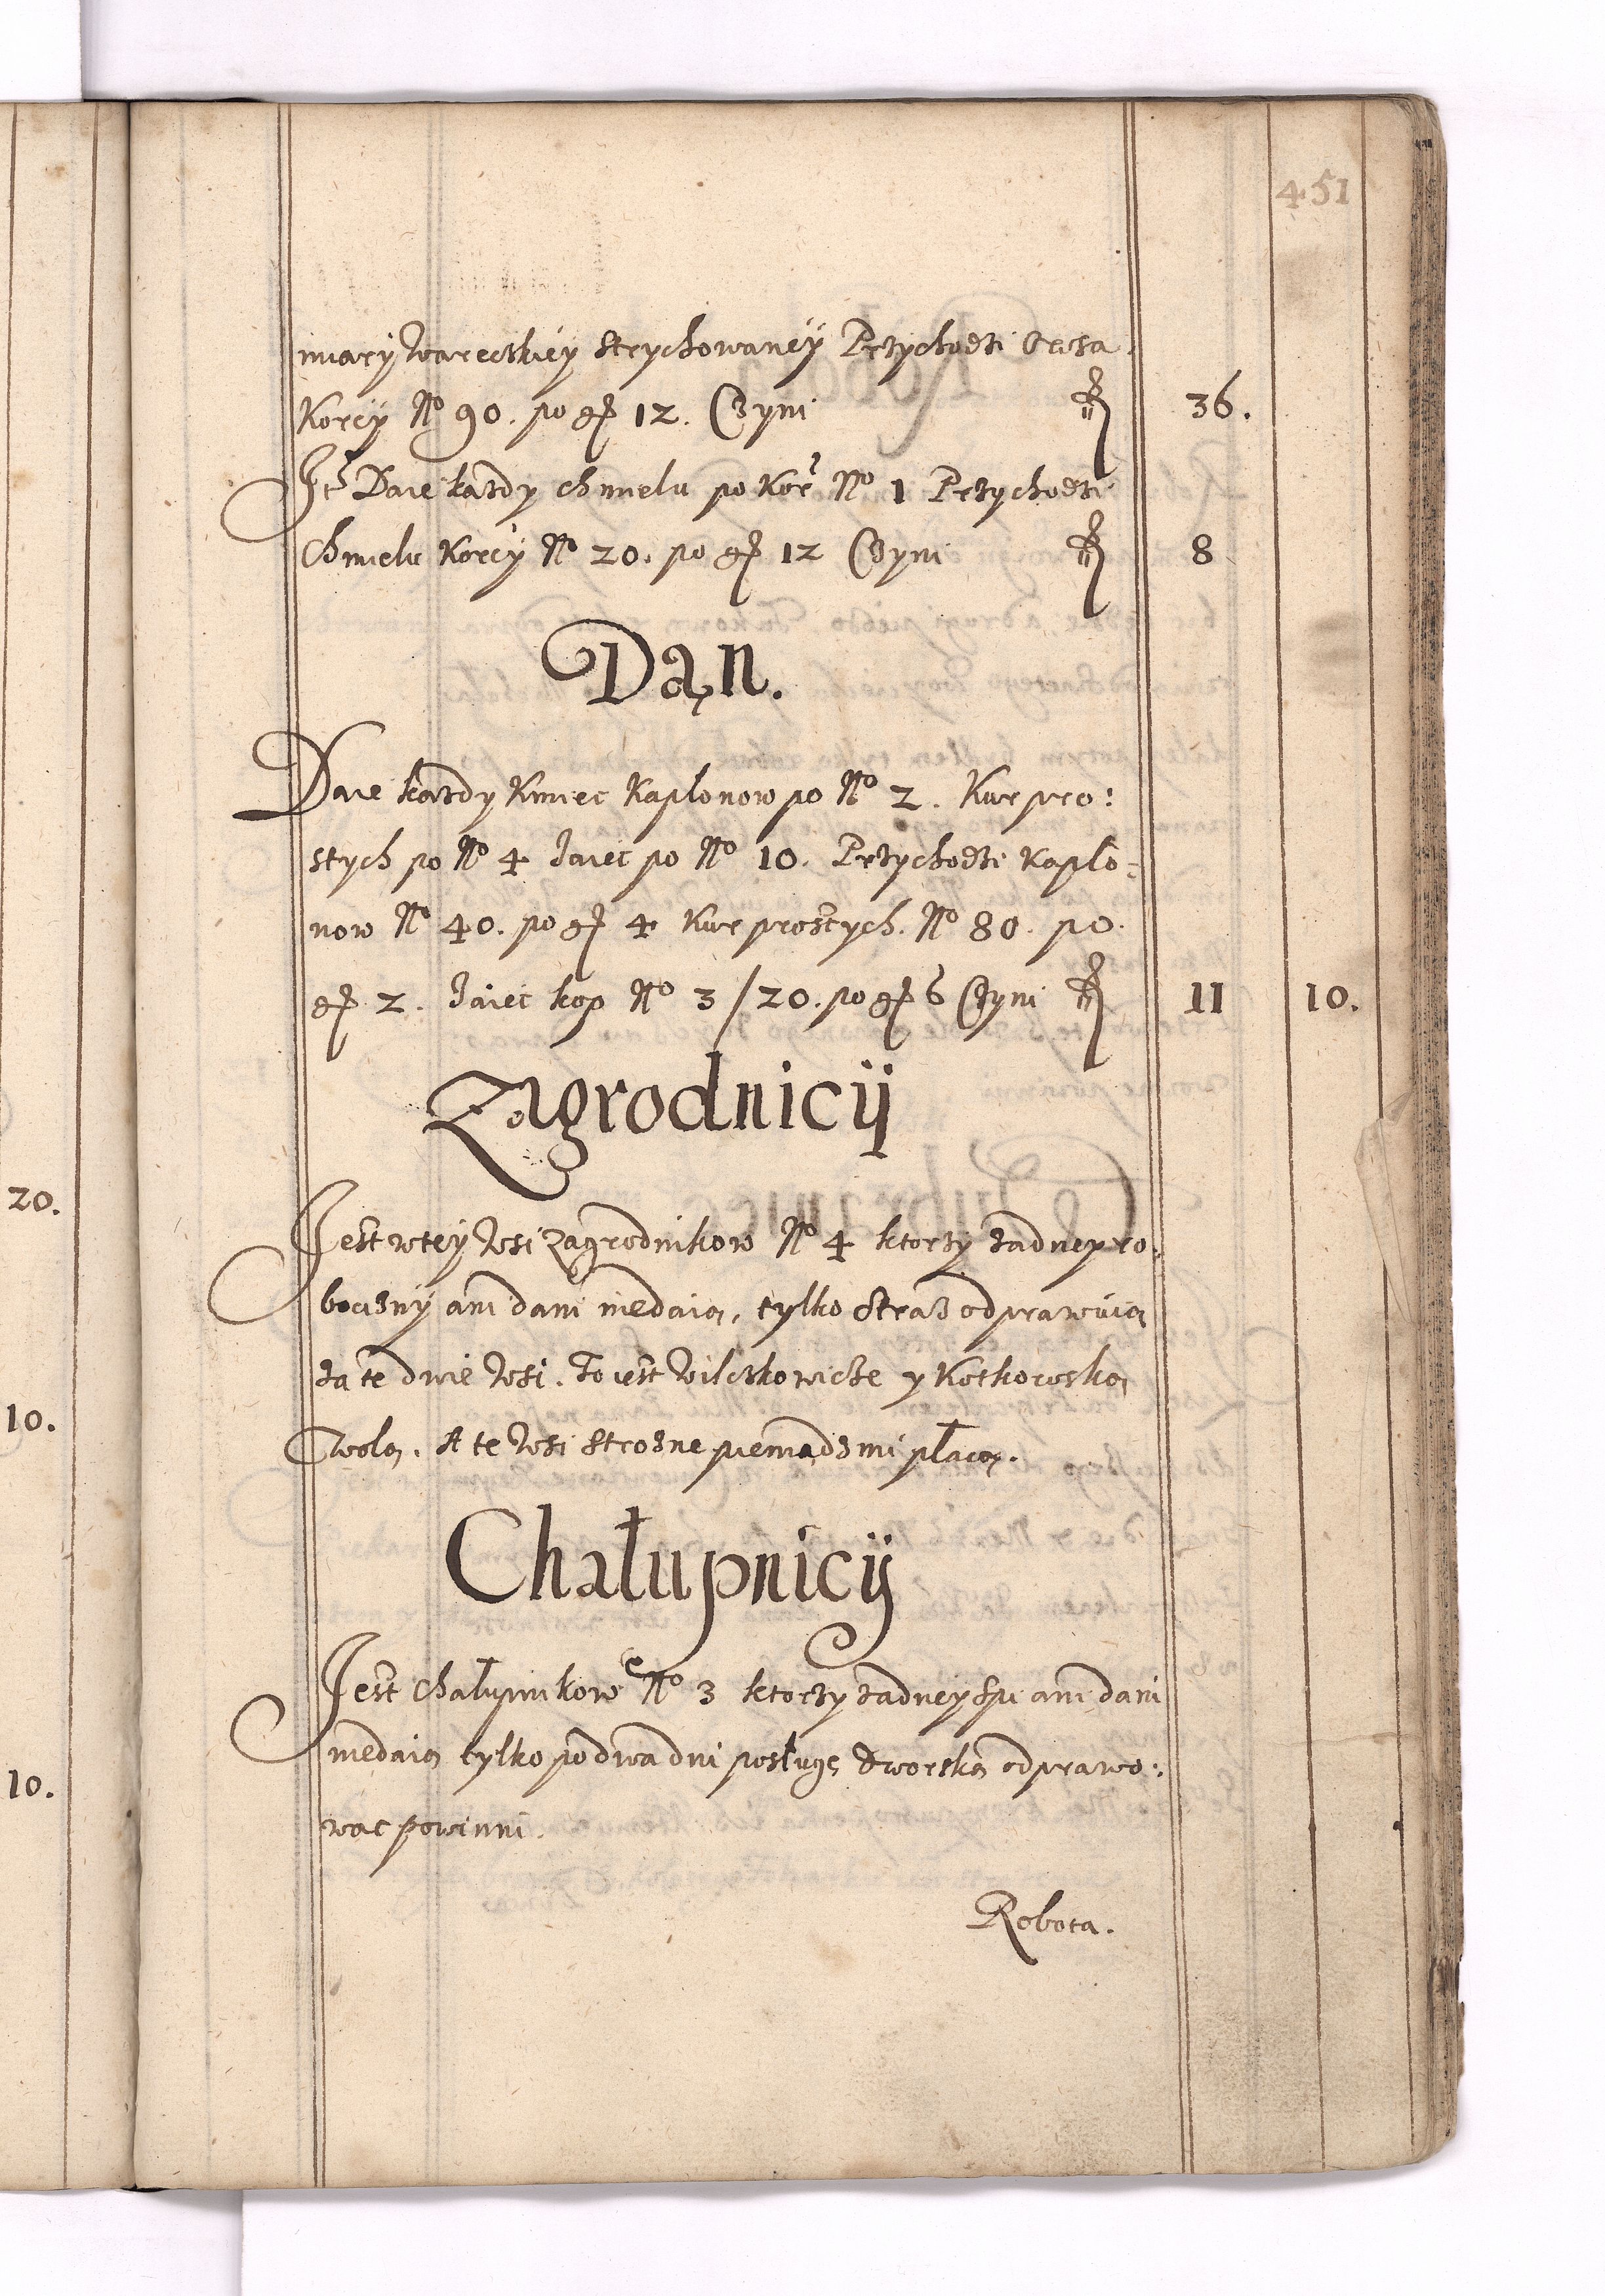 451
miary Wareckiey strychowaney Przychodzi Owsa
Korcy No 90. po gr 12. Czyni fl 36.
Itm Daie kazdy chmielu po Kor No 1 Przychodzi
Chmielu Korcy No 20. po gr 12 Czyni fl 8
Dan.
Daie kazdy Kmiec Kapłonow po No 2. Kur pro:
stych po No 4 Jaiec po No 10. Przychodzi Kapło:
now No 40. po gr 4 Kur prostych. No 80. po
gr 2. Jaiec kop No 3/20. po gr 6 Czyni fl 11 10.
Zagrodnicy
Jest w tey Wsi Zagrodnikow No 4 ktorzy zadney ro:
bocizny ani dani niedaią, tylko Straz odprawuią
za te dwie Wsi. To iest Wilczkowicze y Kotkowską
Wolą. A te Wsi Strozne pieniądzmi płacą.
Chałupnicy
Jest Chałupnikow No 3 ktorzy zadney Spi ani dani
niedaią tylko po dwa dni posługę dworską odprawo:
wac powinni.
Robota.
20.
10.
10.